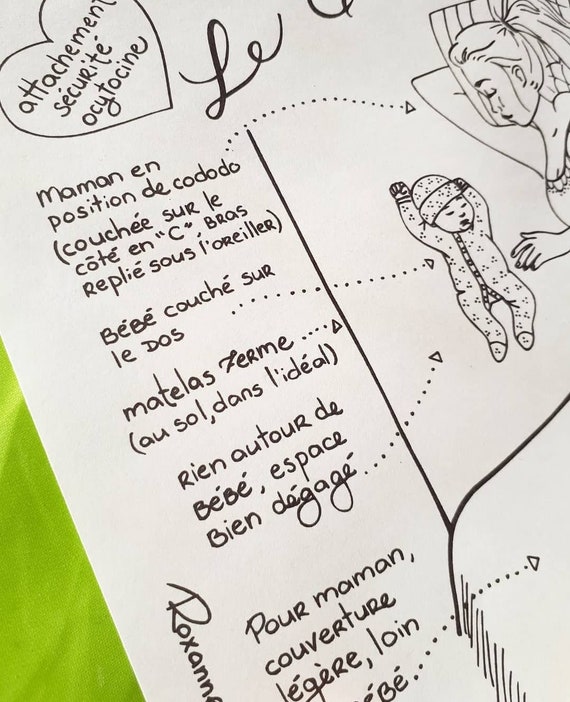 attachement
sécurité
ocytocine
Le
Maman en
position de cododo
(couchée sur le
côté en "C", Bras
Replié sous l'oreiller)
Bébé couché sur
le dos
matelas ferme
(au sol, dans l'idéal)
Rien autour de
Bébé, espace
Bien dégagé
Pour maman,
couverture
légère, loin
Roxann